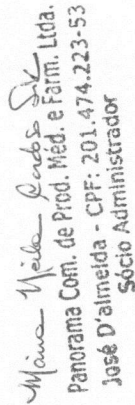 Maria
Panorama Com. de Prod. Méd. e Farm. Ltda.
José D'almeida - CPF: 201.474.223-53
Sócio Administrador